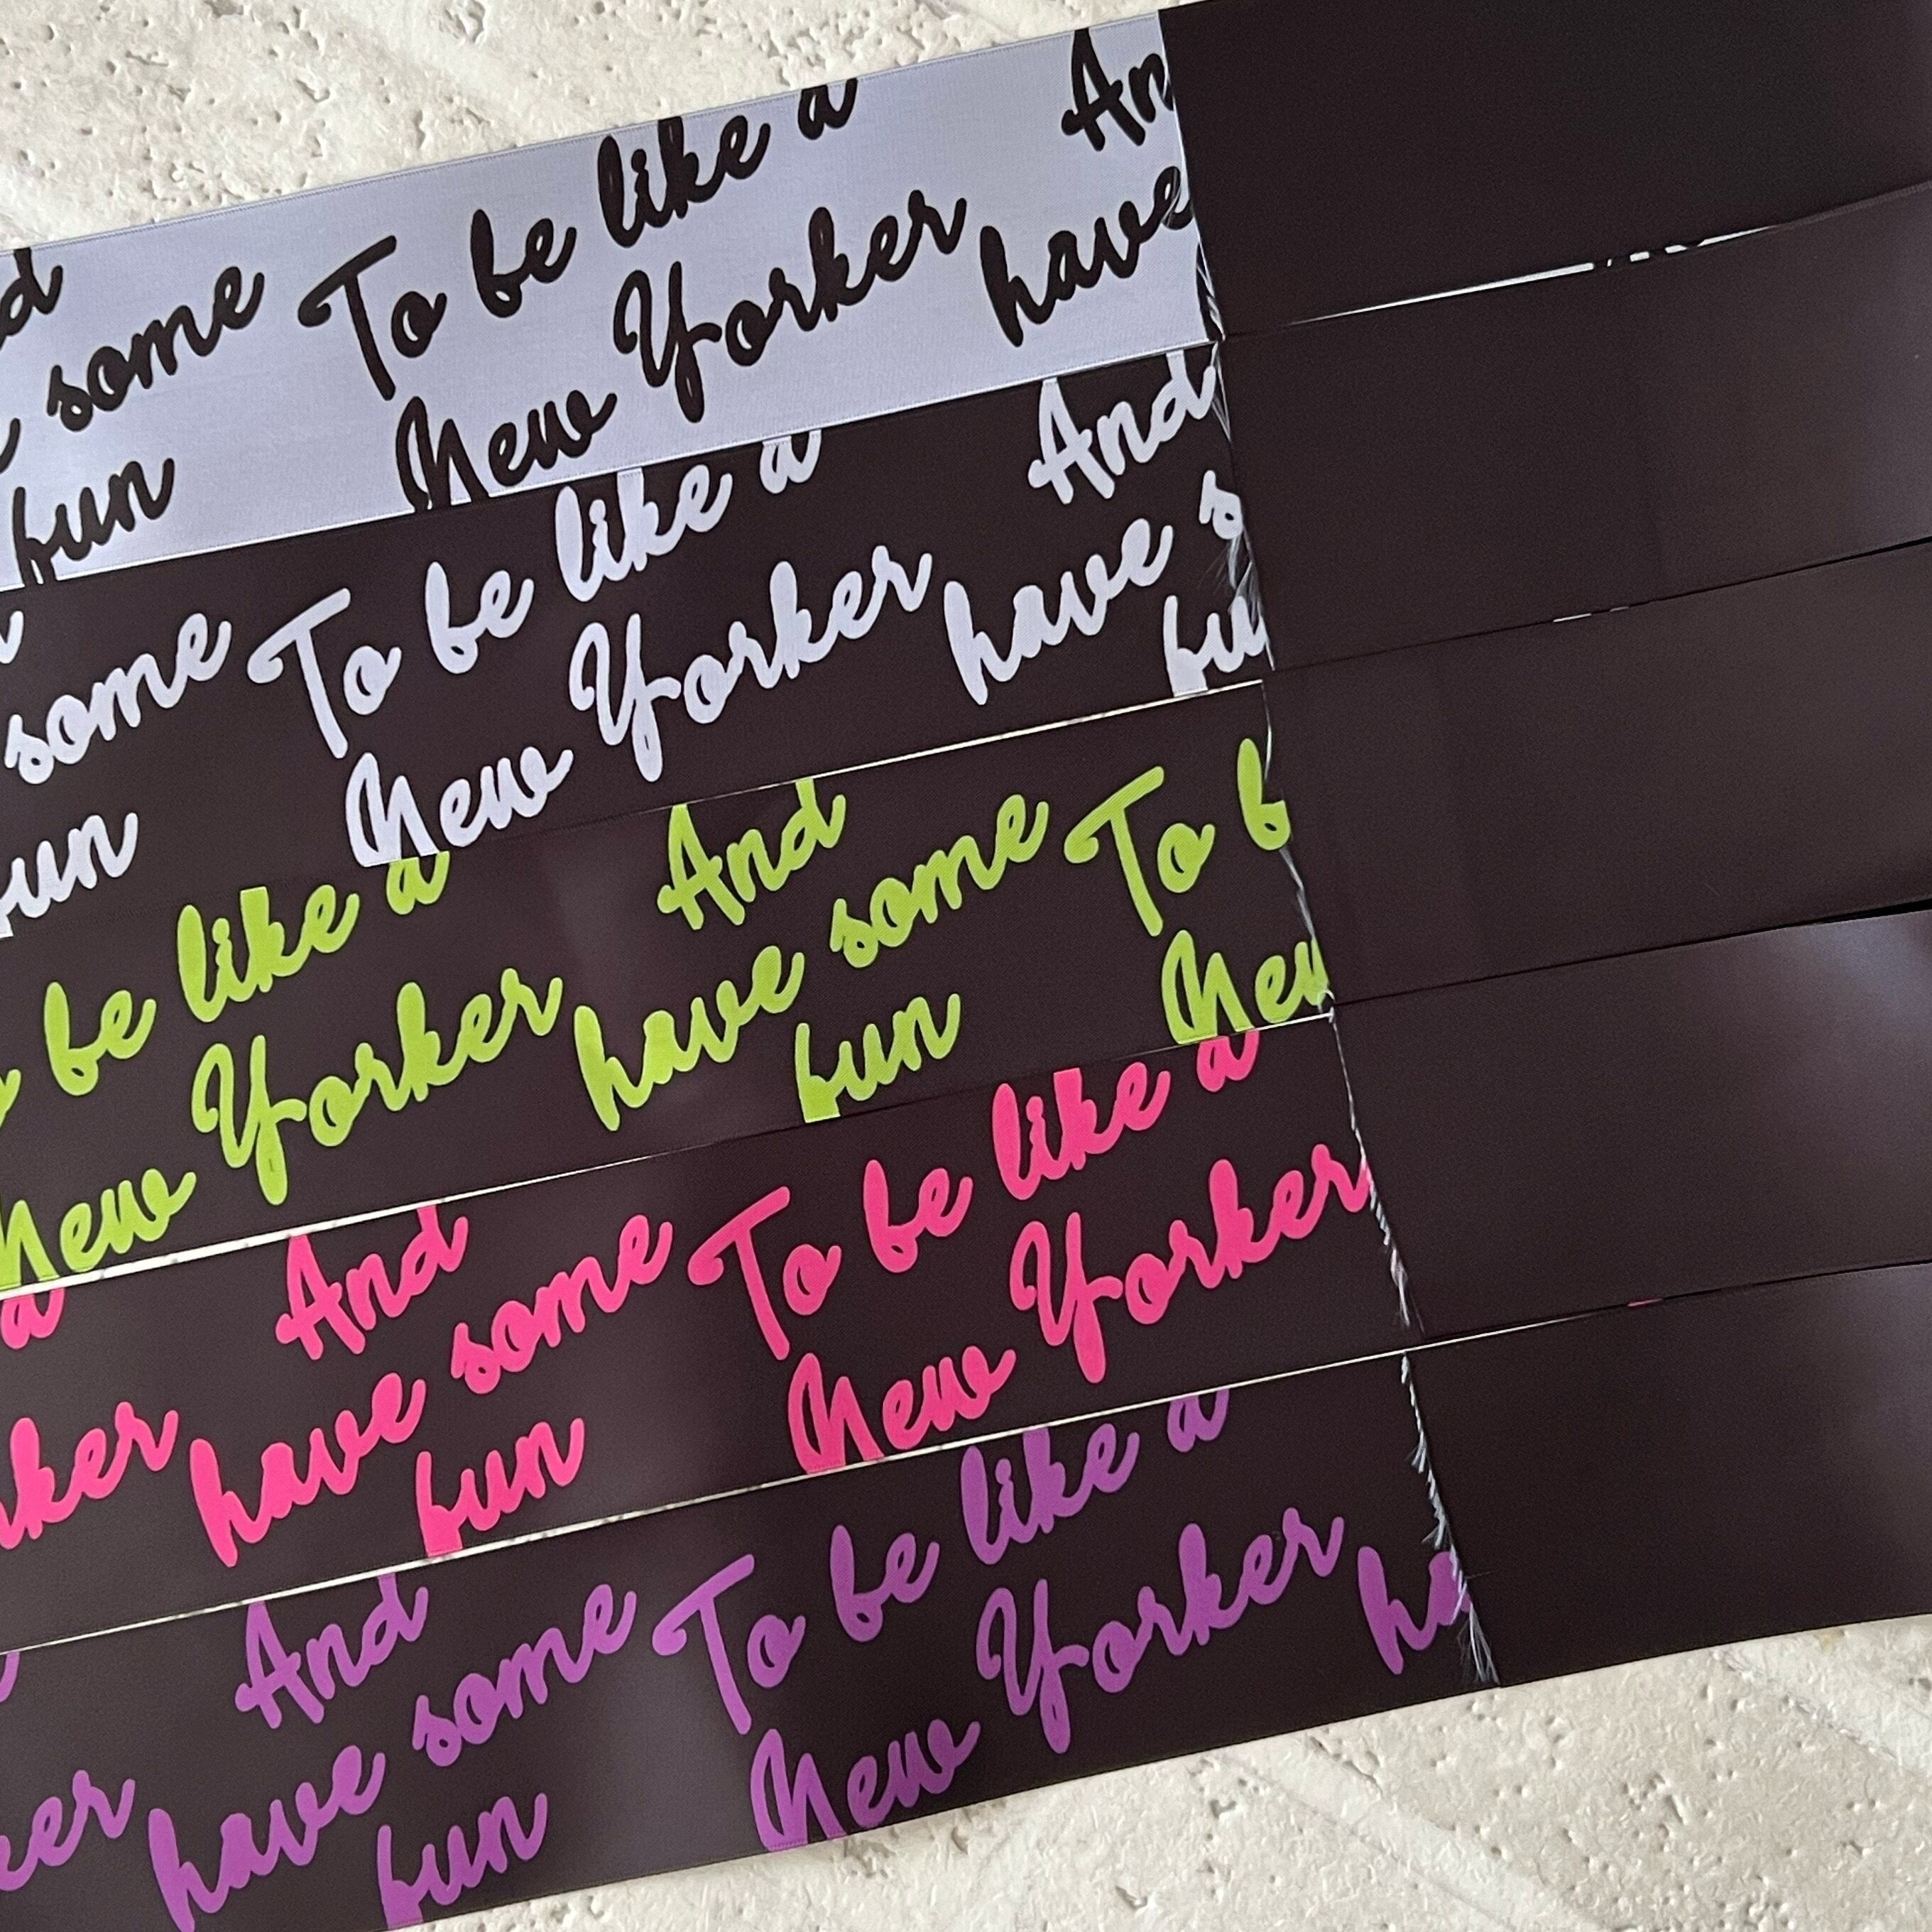 some
fun
To be like a
New Yorker
An
have
some
fun
To be like a
New Yorker
And
have s
fu
be like a
New Yorker
And
have some
fun
To b
New
a
ker
And
have some
fun
To be like a
New Yorker
ker
And
have some
fun
To be like a
New Yorker
ha